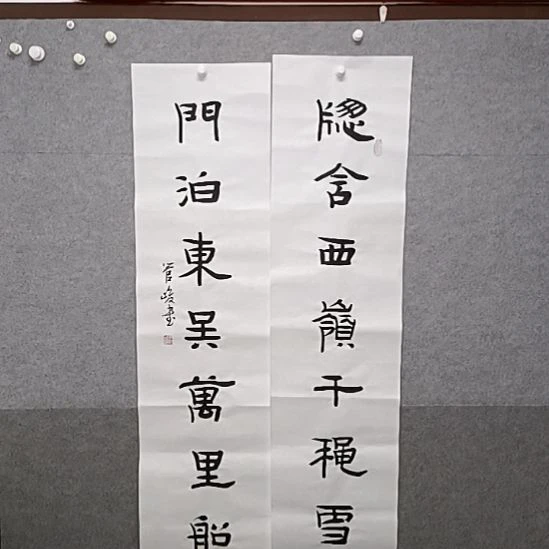 牕含西嶺千穐雪
門泊東吳萬里船
管峻書